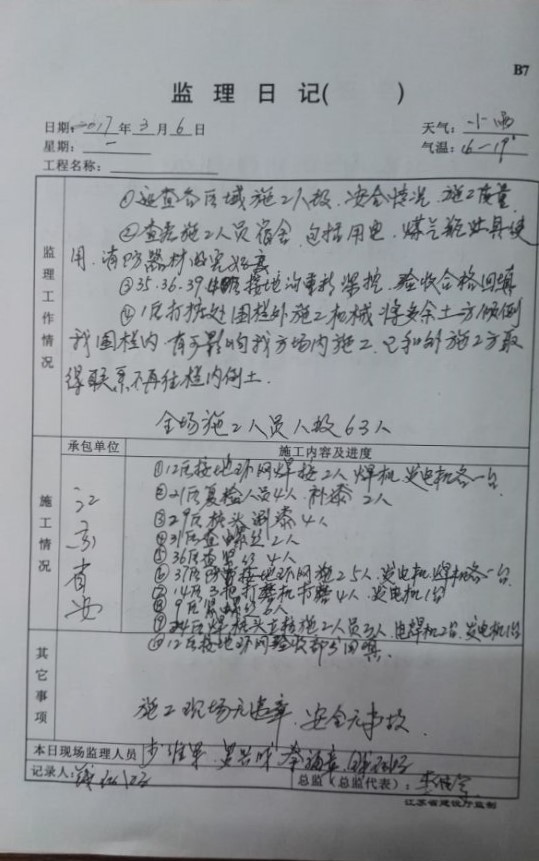 B7
监理日记( )
日期: 2017年3月6日 天气: 小雨
星期: 一 气温: 16—19°
工程名称:
监理工作情况
①巡查各区域施工人数、安全情况、施工质量
②查看施工人员宿舍,包括用电、煤气瓶灶具使
用,消防器材的完好
③35.36.39 接地沟 验收合格回填
④1区打桩处围栏外施工机械将多余土方倾倒
我围栏内,有影响我方场内施工,已和外施工方取
得联系不再往栏内倒土.
全场施工人员人数63人
承包单位 施工内容及进度
施工情况
江 省 安
①12区接地环网焊接2人 焊机、发电机各一台
②21区复检人员4人、补漆2人
③29区桩头涮漆4人
④31区查螺丝2人
⑤36区查 4人
⑥37区 接地环网施工5人.发电机.焊机各一台
⑦14区 打磨机打磨4人、发电机1台
⑧9区 螺丝6人
⑨24区焊桩头 施工人员3人、电焊机2台.发电机1台
⑩12区接地环网验收部分回填.
其它事项
施工现场无违章,安全无事故.
本日现场监理人员
记录人: 总监(总监代表):
江苏省建设厅监制